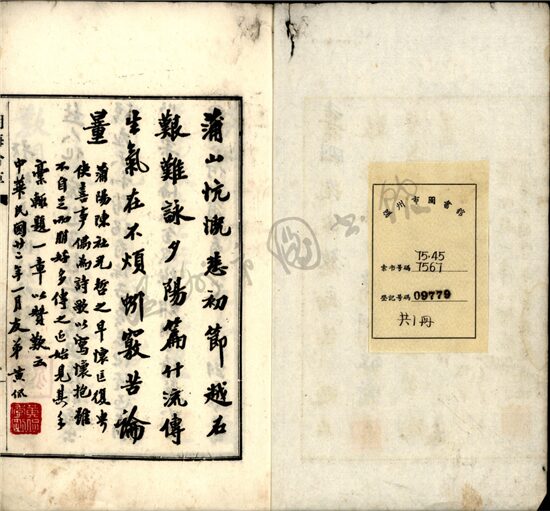 溫州市圖書館
索书号碼 T5.45
7567
登記号碼 09779
共1册
蒲山忼慨悲初節越石
艱難詠夕陽篇什流傳
生氣在不煩斷竅苦論
量
蒲陽陳社兄哲之早懷匡復
使喜事偶為詩歌以寫懷抱雖
不自足而朋好多傳之近始見其手
稾輒題一章以贊歎云
中華民國廿二年一月友弟黃侃